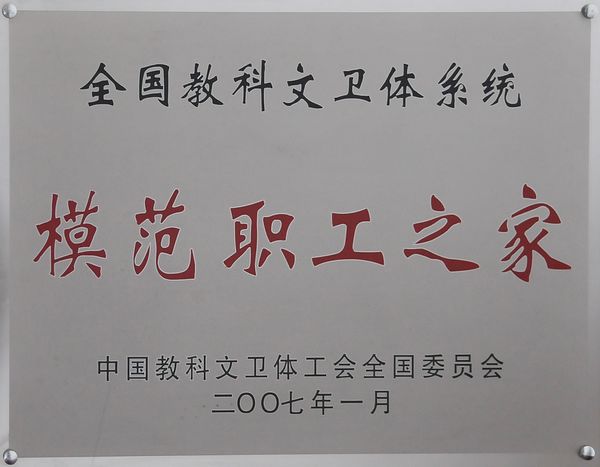 全国教科文卫体系统
模范职工之家
中国教科文卫体工会全国委员会
二〇〇七年一月